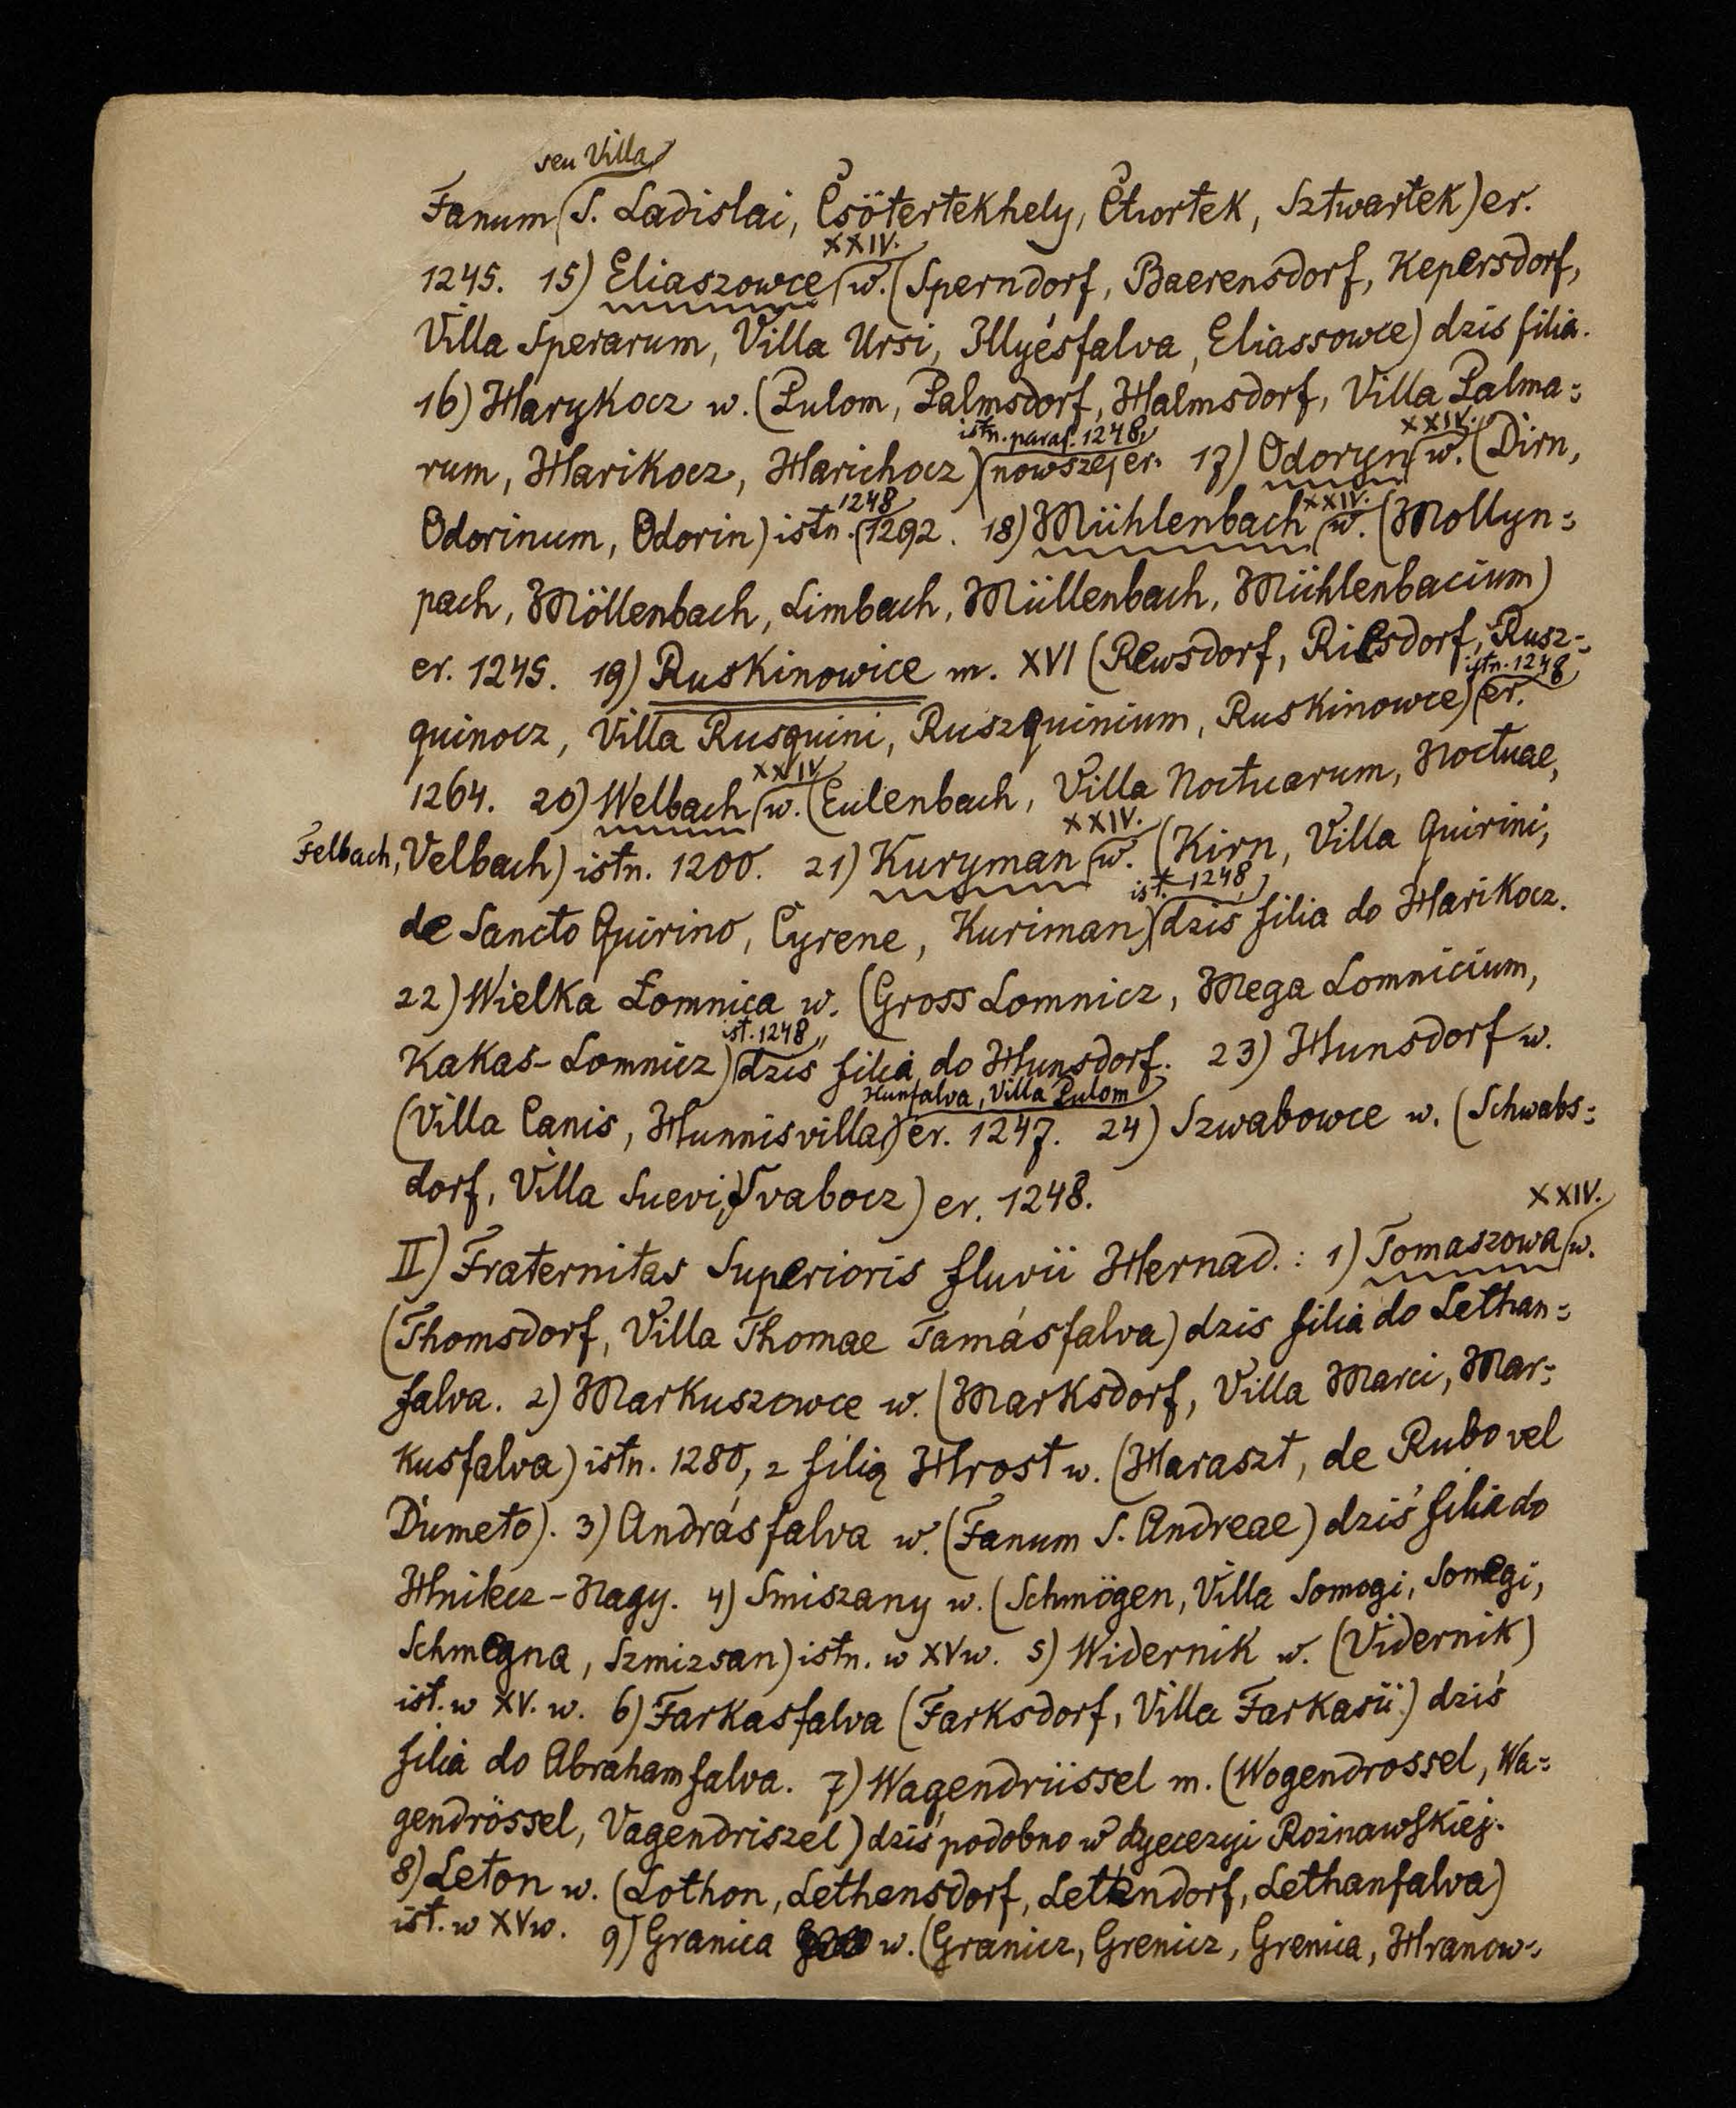 seu Villa
Fanum S. Ladislai, Csötertekhely, Čtwortek, Sztwartek) er.
XXIV.
1245. 15) Eliaszowce w. (Sperndorf, Baerensdorf, Kepersdorf,
Villa Sperarum, Villa Ursi, Illyésfalva, Eliassowce) dzis filia.
16) Harykocz w. (Pulom, Palmsdorf, Halmsdorf, Villa Palma=
istn. paraf. 1248, XXIV.
rum, Harikocz, Harichocz) nowszej er. 17) Odoryn w. (Dirn,
1248 XXIV.
Odorinum, Odorin) istn. 1292. 18) Mühlenbach w. (Mollyn=
pach, Möllenbach, Limbach, Müllenbach, Mühlenbacium)
er. 1245. 19) Ruskinowice m. XVI (Rewsdorf, Riesdorf, Rusz=
istn. 1248
quinocz, Villa Rusquini, Ruszquinium, Ruskinowce) er.
XXIV
1264. 20) Welbach w. (Eulenbach, Villa Noctuarum, Noctuae,
XXIV.
Felbach, Velbach) istn. 1200. 21) Kuryman w. (Kirn, Villa Quirini,
ist. 1248,
de Sancto Quirino, Cyrene, Kuriman) dziś filia do Harikocz.
22) Wielka Łomnica w. (Gross Lomnicz, Mega Lomnicium,
ist. 1248,
Kakas-Lomnicz) dzis filia do Hunsdorf. 23) Hunsdorf w.
Hunfalva, Villa Pulom
(Villa Canis, Hunnisvilla) er. 1247. 24) Szwabowce w. (Schwabs=
dorf, Villa Suevi, Svabocz) er. 1248.
XXIV.
II) Fraternitas Superioris fluvii Hernad.: 1) Tomaszowa w.
(Thomsdorf, Villa Thomae Tamásfalva) dzis filia do Lethan=
falva. 2) Markuszowce w. (Marksdorf, Villa Marci, Mar=
kusfalva) istn. 1280, z filią Hrost w. (Haraszt, de Rubo vel
Dumeto). 3) Andrásfalva w. (Fanum S. Andreae) dziś filia do
Hnilecz-Nagy. 4) Smiszany w. (Schmögen, Villa Somogi, Somegi,
Schmegna, Szmizsan) istn. w XV w. 5) Widernik w. (Vidernik)
ist. w XV. w. 6) Farkasfalva (Farksdorf, Villa Farkasii) dziś
filia do Abrahamfalva. 7) Wagendrüssel m. (Wogendrossel, Wa=
gendrössel, Vagendriszel) dziś podobno w dyecezyi Rożnawskiej.
8) Leton w. (Lothon, Lethensdorf, Lettendorf, Lethanfalva)
ist. w XV w. 9) Granica w. (Granicz, Grenicz, Grenica, Hranow=